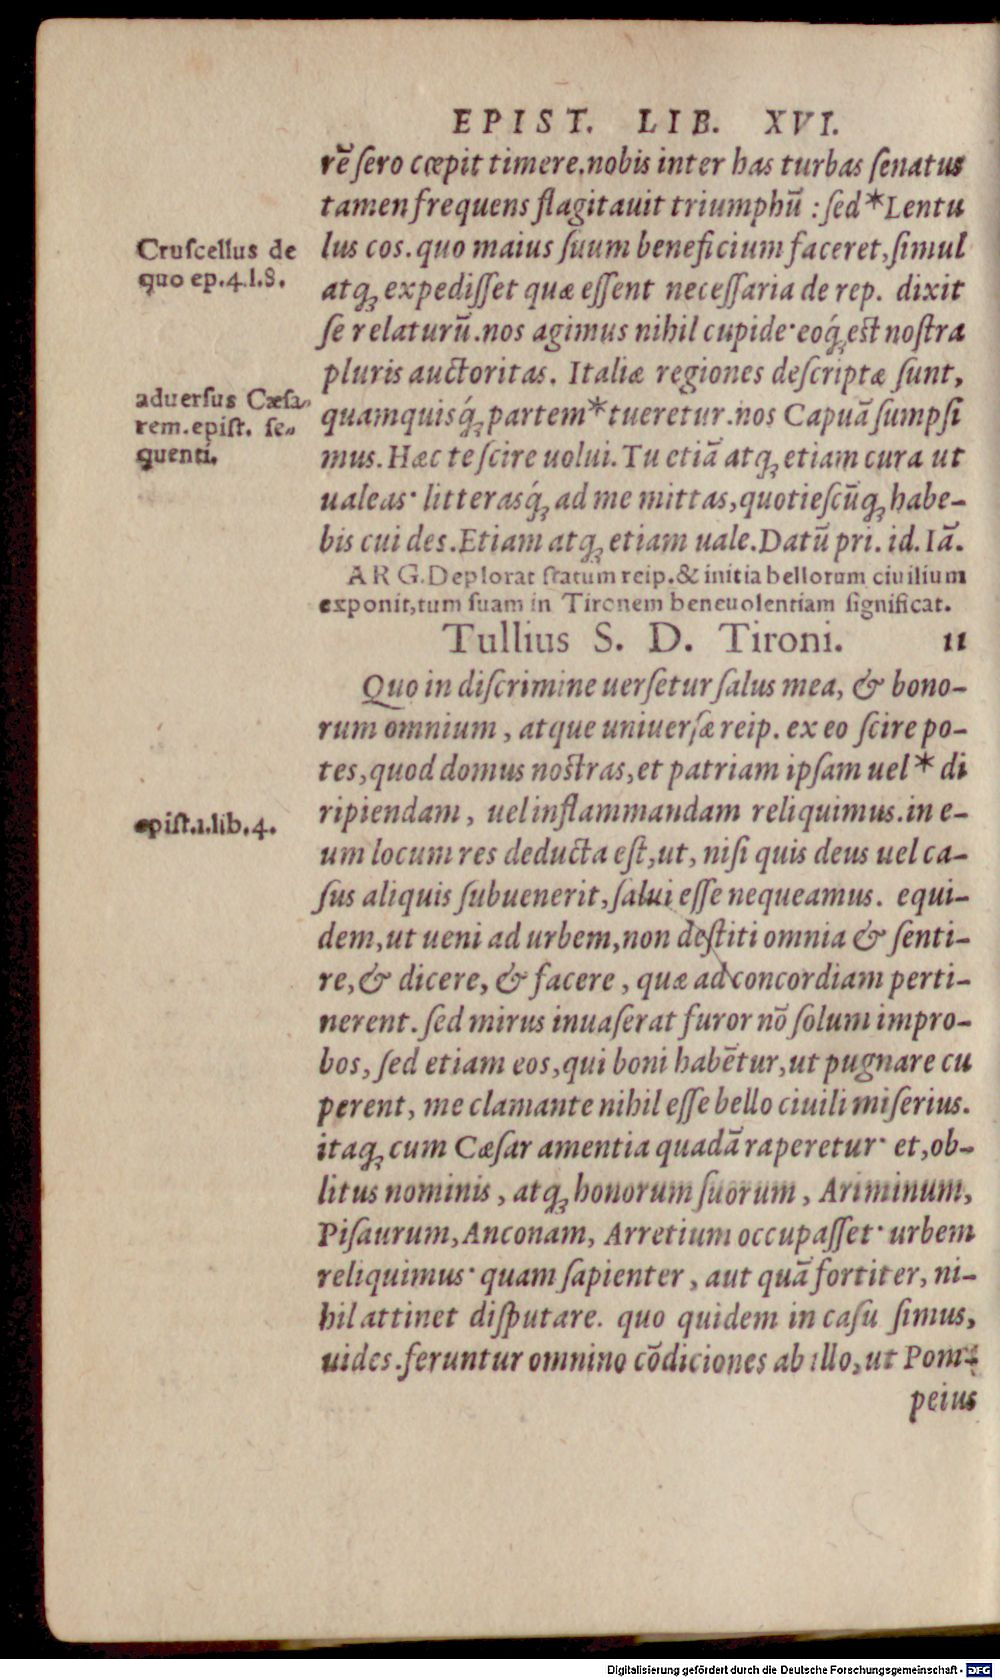 EPIST. LIB. XVI.
rē ſero cœpit timere. nobis inter has turbas ſenatus
tamen frequens flagitauit triumphū : ſed * Lentu
Cruſcellus de
quo ep. 4. l. 8.
lus cos. quo maius ſuum beneficium faceret, ſimul
atq; expediſſet quæ eſſent neceſſaria de rep. dixit
ſe relaturū. nos agimus nihil cupide· eoq́; eſt noſtra
pluris auctoritas. Italiæ regiones deſcriptæ ſunt,
aduerſus Cæſa-
rem. epiſt. ſe-
quenti.
quam quisq́; partem * tueretur. nos Capuā ſumpſi
mus. Hæc te ſcire uolui. Tu etiā atq; etiam cura ut
ualeas· litterasq́; ad me mittas, quotieſcūq; habe-
bis cui des. Etiam atq; etiam uale. Datū pri. id. Iā.
ARG. Deplorat ſtatum reip. & initia bellorum ciuilium
exponit, tum ſuam in Tironem beneuolentiam ſignificat.
Tullius S. D. Tironi. 11
Quo in diſcrimine uerſetur ſalus mea, & bono-
rum omnium, atque uniuerſæ reip. ex eo ſcire po-
tes, quod domus noſtras, et patriam ipſam uel * di
epiſt. 1. lib. 4.
ripiendam, uel inflammandam reliquimus. in e-
um locum res deducta eſt, ut, niſi quis deus uel ca-
ſus aliquis ſubuenerit, ſalui eſſe nequeamus. equi-
dem, ut ueni ad urbem, non deſtiti omnia & ſenti-
re, & dicere, & facere, quæ ad concordiam perti-
nerent. ſed mirus inuaſerat furor nō ſolum impro-
bos, ſed etiam eos, qui boni habētur, ut pugnare cu
perent, me clamante nihil eſſe bello ciuili miſerius.
itaq; cum Cæſar amentia quadā raperetur· et, ob-
litus nominis, atq; honorum ſuorum, Ariminum,
Piſaurum, Anconam, Arretium occupaſſet· urbem
reliquimus· quam ſapienter, aut quā fortiter, ni-
hil attinet diſputare. quo quidem in caſu ſimus,
uides. feruntur omnino cōdiciones ab illo, ut Pom-
peius
Digitalisierung gefördert durch die Deutsche Forschungsgemeinschaft - DFG